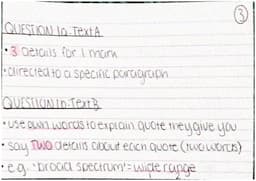 3
QUESTION 1a: Text A
• 3 details for 1 mark
• directed to a specific paragraph
QUESTION 1b: Text B
• use own words to explain quote they give you
• say TWO details about each quote (two words)
• e.g. "broad spectrum" = wide range